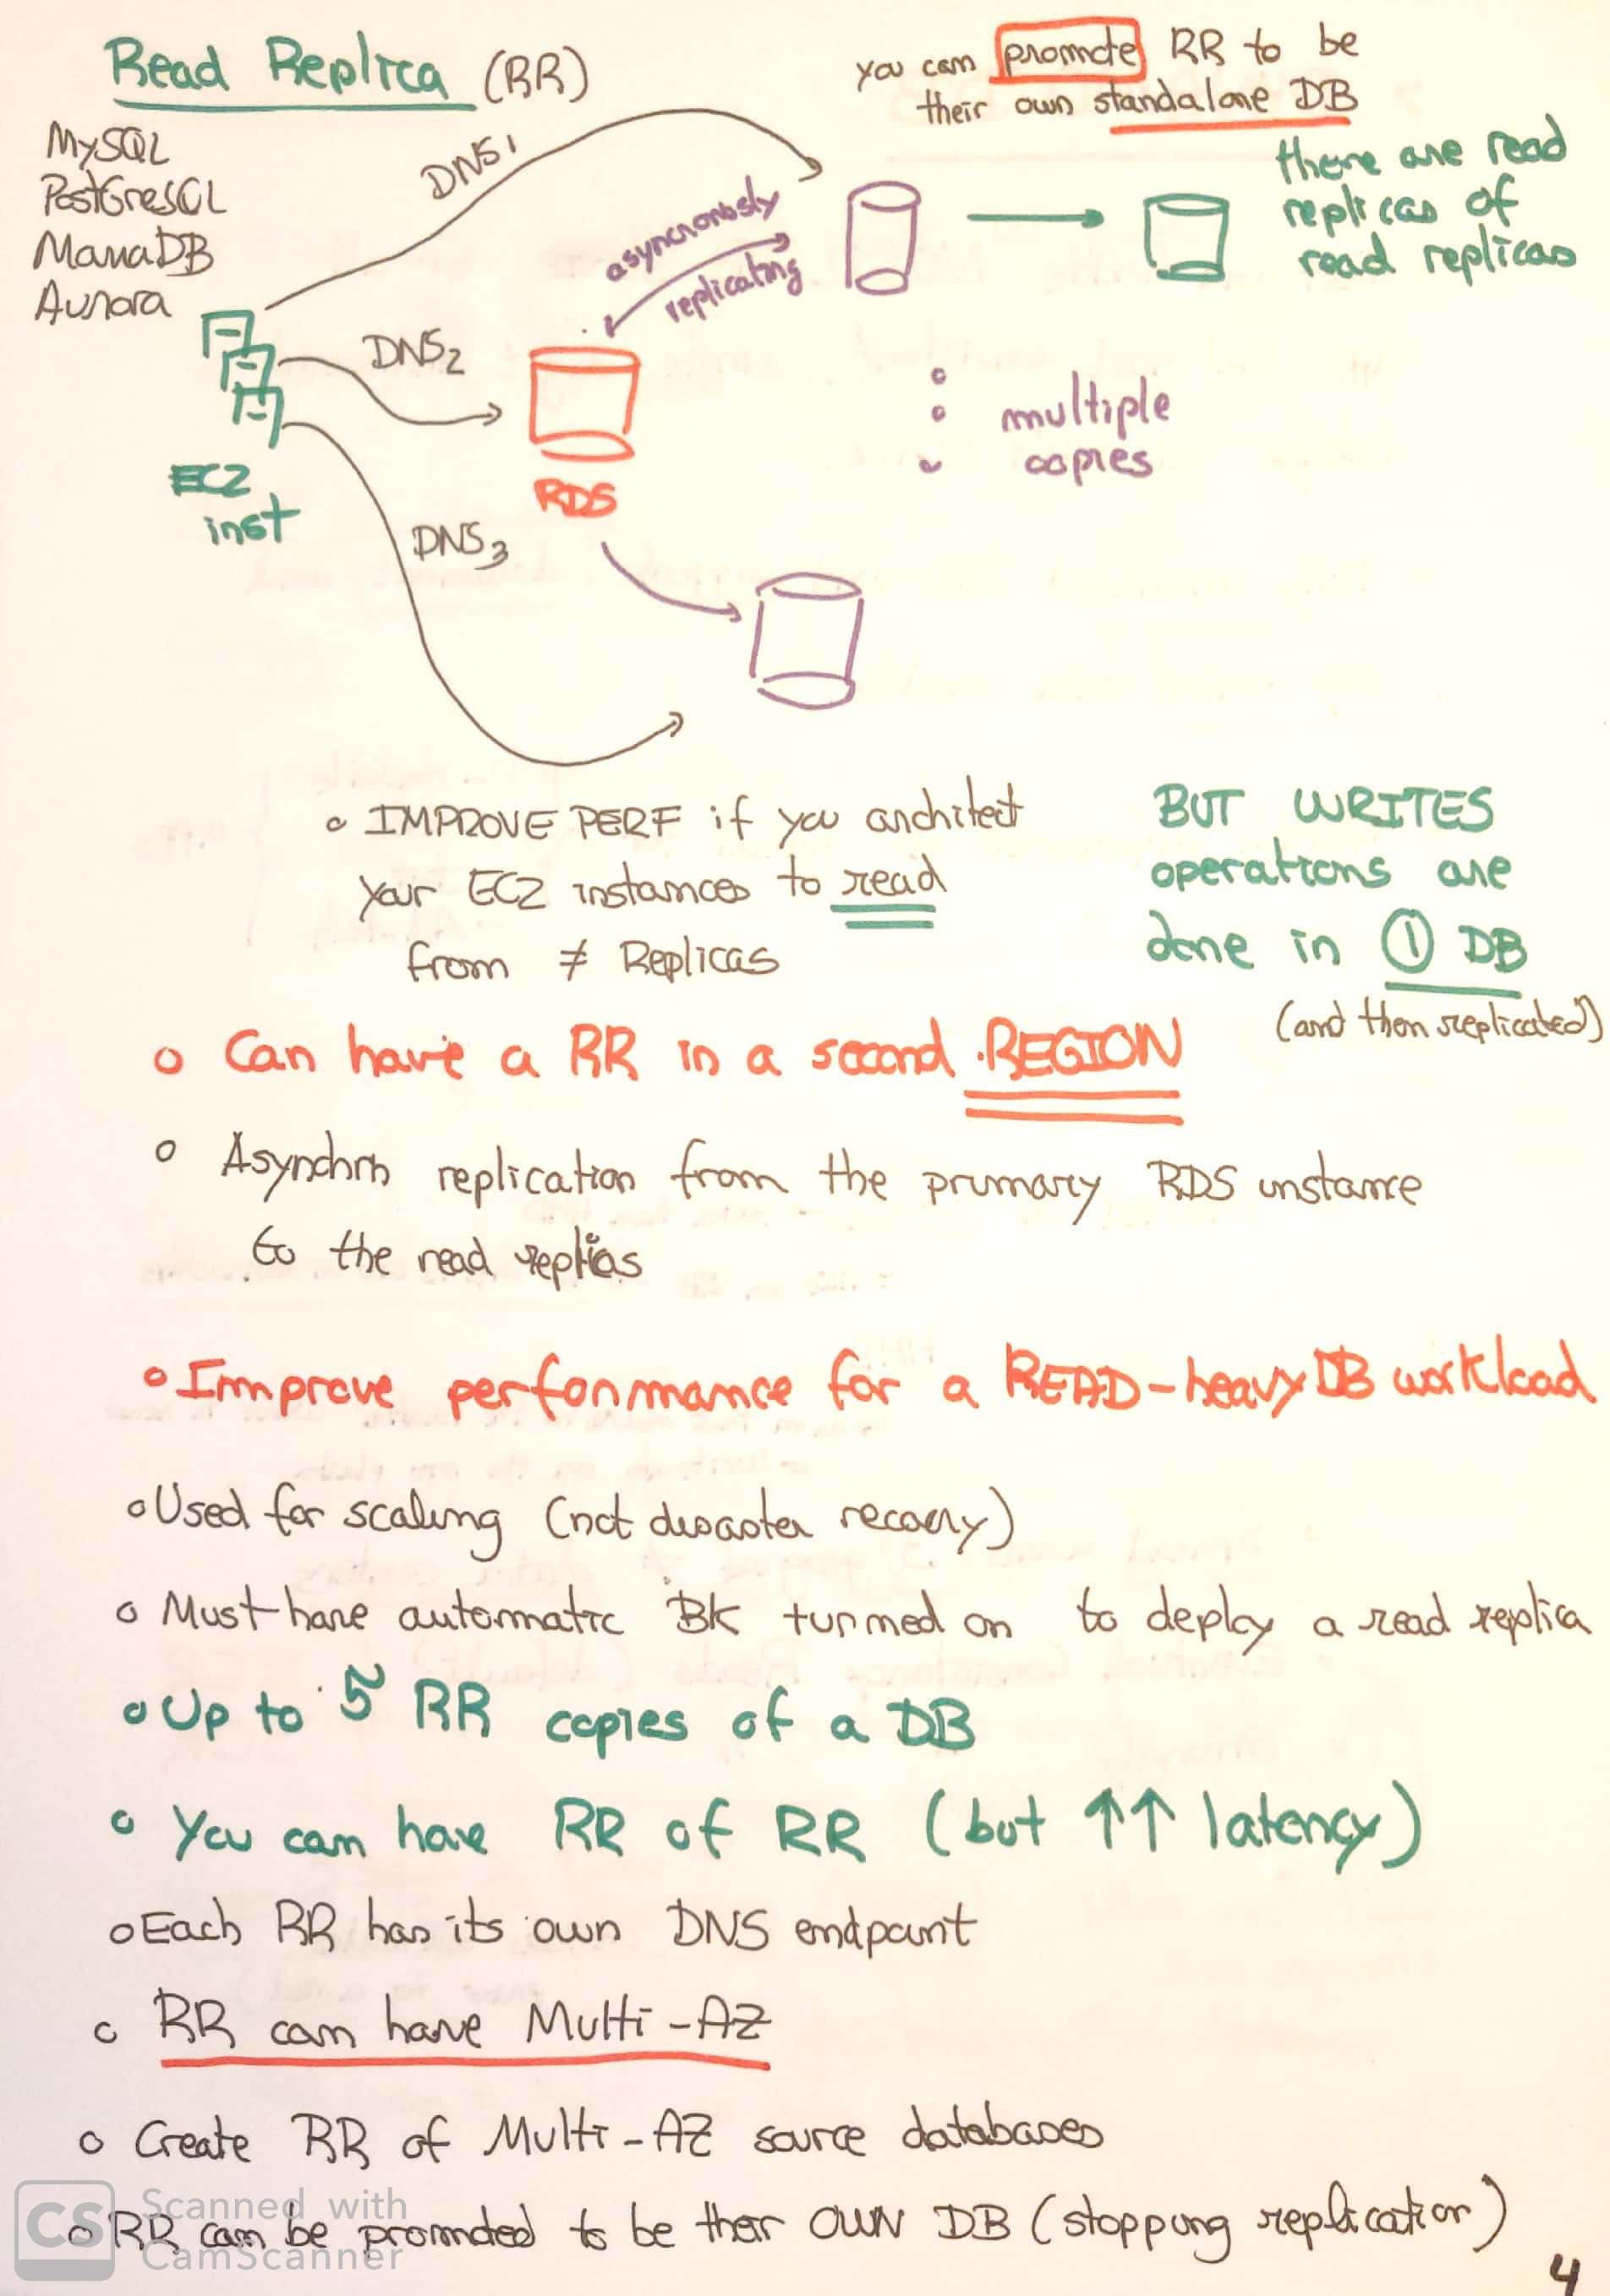 Read Replica (RR)
you can promote RR to be
their own standalone DB
MySQL
PostGresQL
MariaDB
Aurora
DNS1
asyncronously
replicating
there are read
replicas of
read replicas
DNS2
EC2
inst
RDS
multiple
copies
DNS3
o IMPROVE PERF if you architect
your EC2 instances to read
from ≠ Replicas
BUT WRITES
operations are
done in ① DB
(and then replicated)
o Can have a RR in a second REGION
o Asynchrn replication from the primary RDS instance
to the read replicas
o Improve performance for a READ-heavy DB workload
o Used for scaling (not disaster recovery)
o Must have automatic BK turned on to deploy a read replica
o Up to 5 RR copies of a DB
o You can have RR of RR (but ↑↑ latency)
o Each RR has its own DNS endpoint
o RR can have Multi-AZ
o Create RR of Multi-AZ source databases
o RR can be promoted to be their OWN DB (stopping replication)
CS Scanned with
CamScanner
4